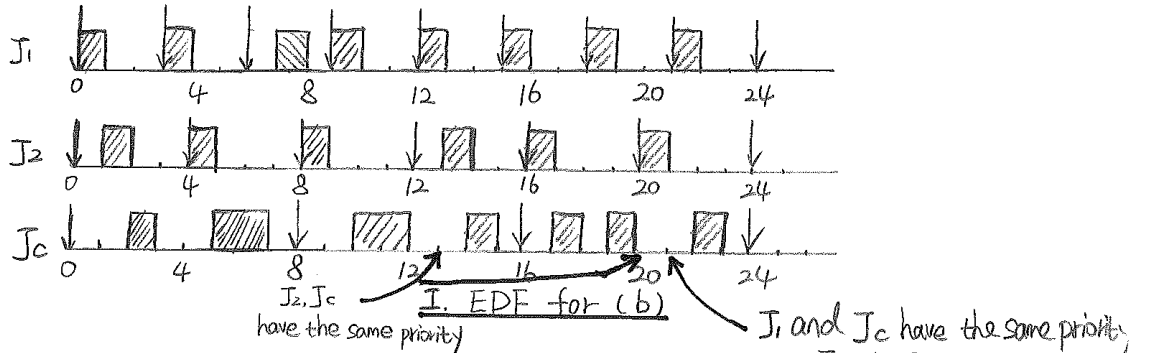 J1
0 4 8 12 16 20 24
J2
0 4 8 12 16 20 24
Jc
0 4 8 12 16 20 24
J2, Jc
have the same priority
I. EDF for (b)
J1 and Jc have the same priority,